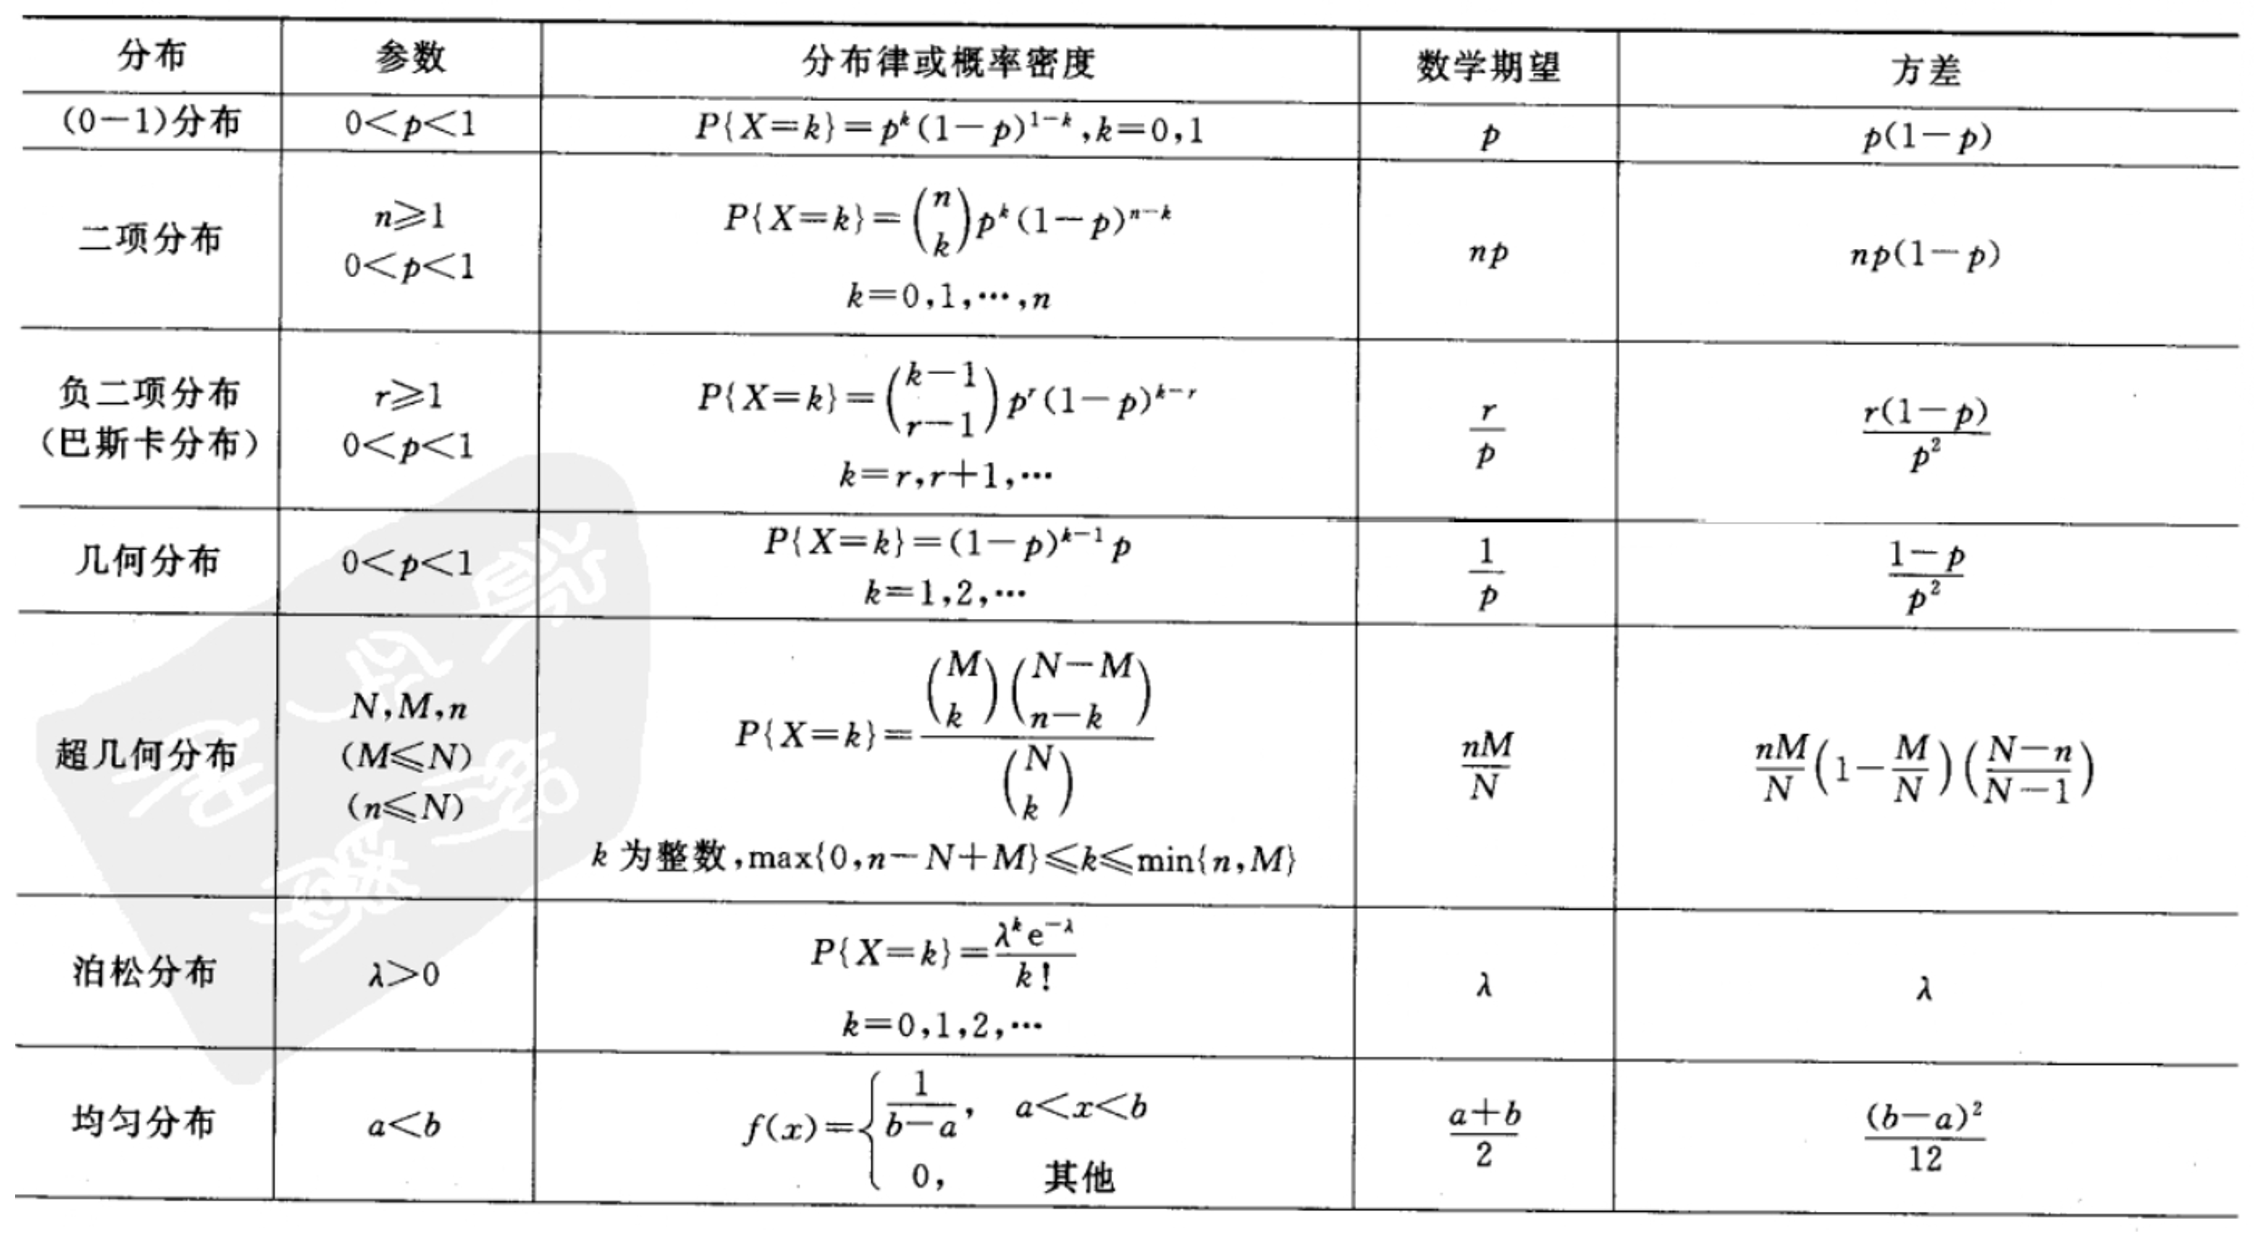 分布 参数 分布律或概率密度 数学期望 方差
(0-1)分布 0<p<1 P{X=k}=p^k(1-p)^{1-k},k=0,1 p p(1-p)
二项分布 n≥1 0<p<1 P{X=k}=\binom{n}{k}p^k(1-p)^{n-k} np np(1-p)
k=0,1,⋯,n
负二项分布 (巴斯卡分布) r≥1 0<p<1 P{X=k}=\binom{k-1}{r-1}p^r(1-p)^{k-r} \frac{r}{p} \frac{r(1-p)}{p^2}
k=r,r+1,⋯
几何分布 0<p<1 P{X=k}=(1-p)^{k-1}p \frac{1}{p} \frac{1-p}{p^2}
k=1,2,⋯
超几何分布 N,M,n (M≤N) (n≤N) P{X=k}=\frac{\binom{M}{k}\binom{N-M}{n-k}}{\binom{N}{k}} \frac{nM}{N} \frac{nM}{N}(1-\frac{M}{N})(\frac{N-n}{N-1})
k为整数,max{0,n-N+M}≤k≤min{n,M}
泊松分布 λ>0 P{X=k}=\frac{λ^k e^{-λ}}{k!} λ λ
k=0,1,2,⋯
均匀分布 a<b f(x)={\frac{1}{b-a}, a<x<b \frac{a+b}{2} \frac{(b-a)^2}{12}
0, 其他